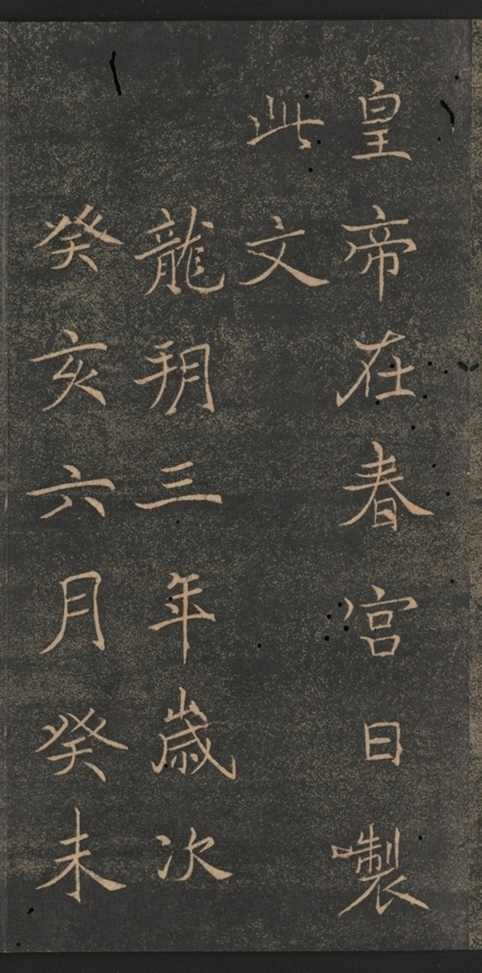 皇帝在春宮日製
此文
龍朔三年歲次
癸亥六月癸未